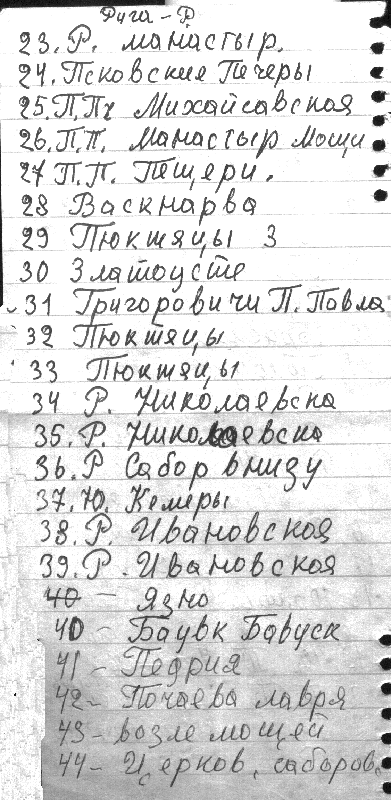 Рига - Р
23. Р. манастыр.
24. Псковские Печеры
25. П.Пч Михайсавская
26. П.П. манастыр мощи
27 П.П. Пещери.
28 Васкнарва
29 Пюктяцы 3
30 Златоусте
31 Григоровичи П. Павла
32 Пюктяцы
33 Пюктяцы
34 Р. Николаевска
35. Р. Николаевска
36. Р Сабор внизу
37. Ю. Кемеры
38. Р. Ивановская
39. Р. Ивановская
40 - Язно
40 - Баувк Бавуск
41 - Педрия
42 - Почаева лавря
43 - возле мощей
44 - Церков, саборов.